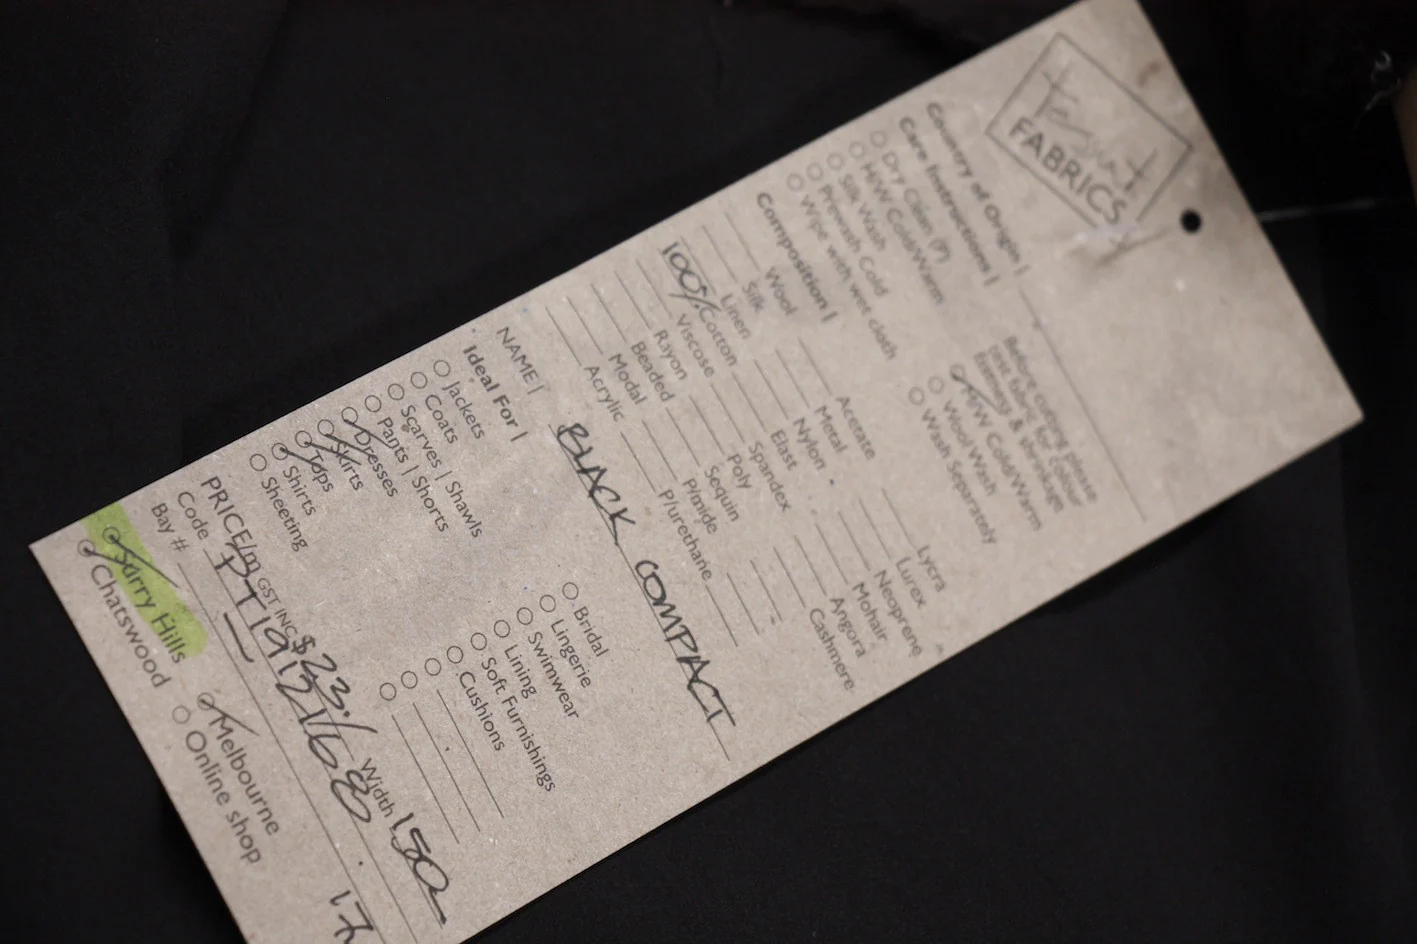 FABRICS
Country of Origin |
Care Instructions |
Dry Clean (P)
H/W Cold/Warm
Silk Wash
Prewash Cold
Wipe with wet cloth
Before cutting please
test fabric for colour
fastness & shrinkage
H/W Cold/Warm
Wool Wash
Wash Separately
Composition |
Wool Acetate Lycra
Silk Metal Lurex
Linen Nylon Neoprene
100% Cotton Elast Mohair
Viscose Spandex Angora
Rayon Poly Cashmere
Beaded Sequin
Modal P/mide
Acrylic P/urethane
NAME | BLACK COMPACT
Ideal For |
Jackets Bridal
Coats Lingerie
Scarves | Shawls Swimwear
Pants | Shorts Lining
Dresses Soft Furnishings
Skirts Cushions
Tops
Shirts
Sheeting
PRICE/m GST INC $ 23.1 Width 150
Code PT19121680
Bay # 17
Surry Hills Melbourne
Chatswood Online shop